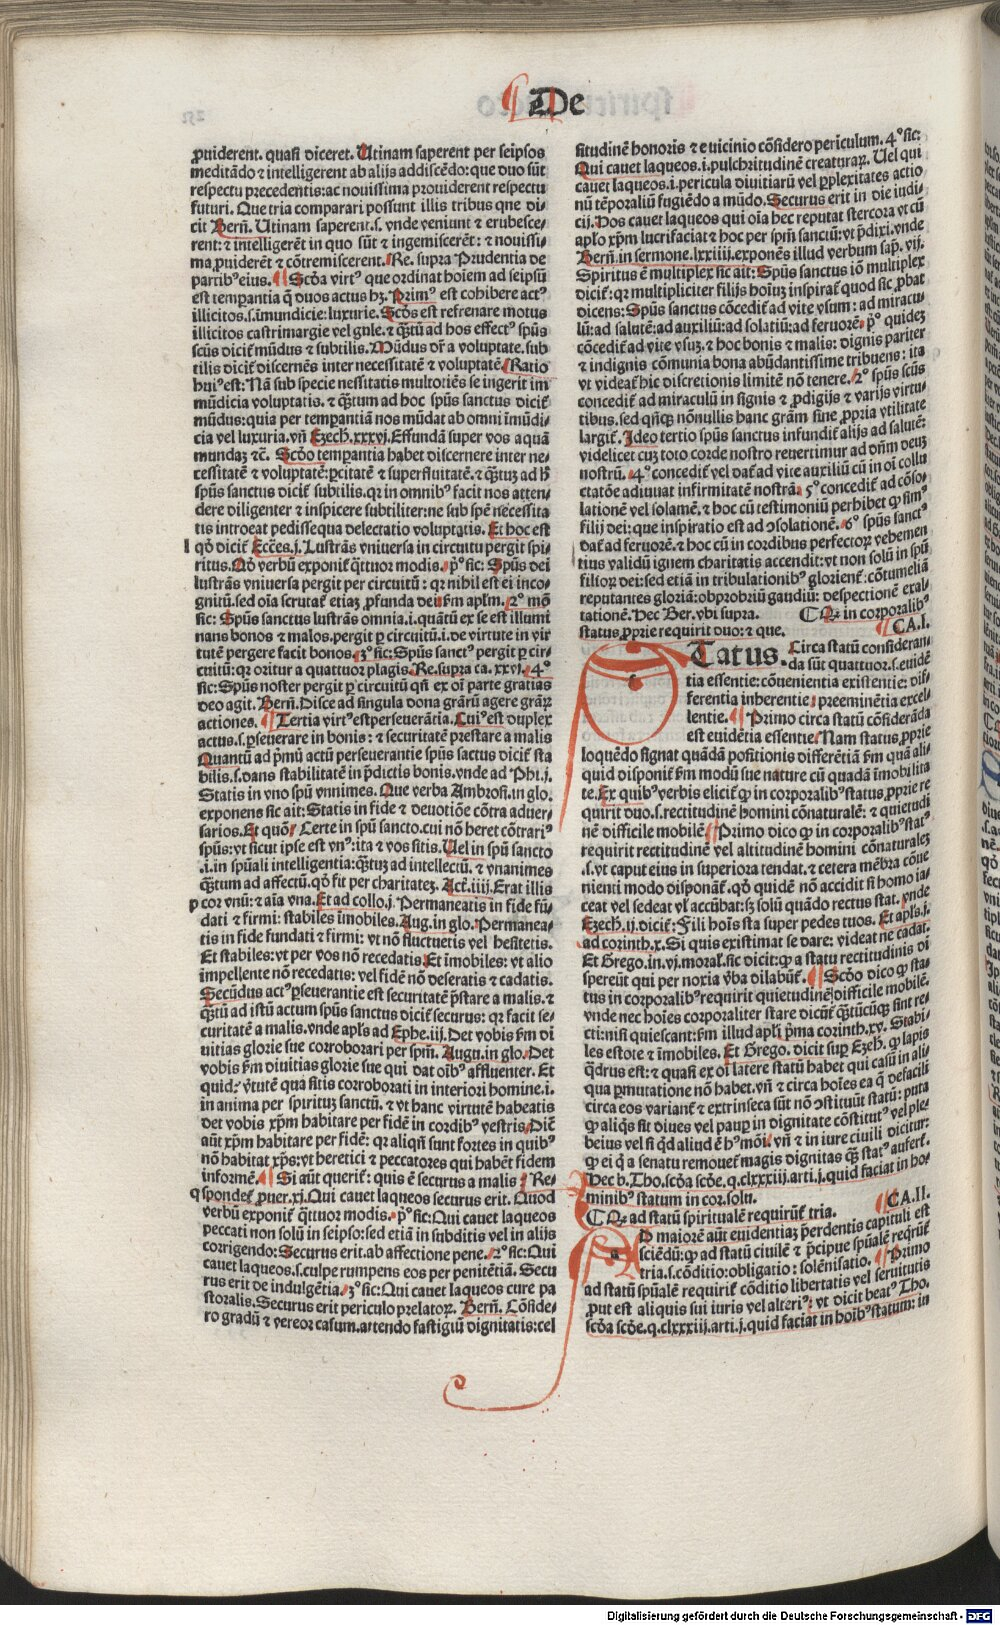 De
ꝓuiderent. quasi diceret. Utinam saperent per seipsos
meditãdo ⁊ intelligerent ab alijs addiscẽdo: que duo sũt
respectu precedentis: ac nouissima prouiderent respectu
futuri. Que tria comparari possunt illis tribus que di/
cit Berñ. Utinam saperent.s. vnde veniunt ⁊ erubesce/
rent: ⁊ intelligerẽt in quo sũt ⁊ ingemiscerẽt: ⁊ nouissi/
ma ꝓuiderẽt ⁊ cõtremiscerent. Re. supra Prudentia de
partibꝰ eius. Scđa virtꝰ que ordinat hoiem ad seipsũ
est temperantia q̃ duos actus hꝫ. Primꝰ est cohibere actꝰ
illicitos.s. ĩmundicie: luxurie. Scđs est refrenare motus
illicitos castrimargie vel gule. ⁊ q̃ꝫtũ ad hos effectꝰ spũs
scũs dicit̃ mũdus ⁊ subtilis. Mũdus dr̃ a voluptate. sub
tilis dicit̃ discernẽs inter necessitatẽ ⁊ voluptatẽ. Ratio
huiꝰ est: Nã sub specie necessitatis multotiẽs se ingerit im
mũdicia voluptatis. ⁊ q̃ꝫtum ad hoc spũs sanctus dicit̃
mũdus: quia per temperantiã nos mũdat ab omni ĩmũdi/
cia vel luxuria. vñ Ezech. xxxvj. Effundã super vos aquã
mundaꝫ ⁊c̃. Scđo temperantia habet discernere inter ne/
cessitatẽ ⁊ voluptatẽ: ꝑcitatẽ ⁊ superfluitatẽ. ⁊ q̃ꝫtuꝫ ad h̃
spũs sanctus dicit̃ subtilis. qꝛ in omnibꝰ facit nos atten/
dere diligenter ⁊ inspicere subtiliter: ne sub spẽ necessita
tis introeat pedissequa delectatio voluptatis. Et hoc est
l qđ dicit̃ Ecc̃es. j. Lustrãs vniuersa in circuitu pergit spi/
ritus. Qđ verbũ exponit̃ q̃ttuor modis. pꝰ sic: Spũs dei
lustrãs vniuersa pergit per circuitũ: qꝛ nihil est ei inco/
gnitũ. sed oĩa scrutat̃ etiaꝫ ꝓfunda dei ẜm aplm̃. 2ꝰ mõ
sic: Spũs sanctus lustrãs omnia. i. quãtũ ex se est illumi
nans bonos ⁊ malos. pergit ꝑ circuitũ. i. de virtute in vir
tutẽ pergere facit bonos. 3ꝰ sic: Spũs sanctꝰ pergit ꝑ cir/
cuitũ: qꝛ oritur a quattuor plagis. Re. supra ca. xxvj. 4ꝰ
sic: Spũs noster pergit ꝑ circuitũ qñ ex oĩ parte gratias
deo agit. Berñ. Disce ad singula dona grãrũ agere grãꝝ
actiones. Tertia virtꝰ est perseuerãtia. Cuiꝰ est duplex
actus.s. ꝑseuerare in bonis: ⁊ securitatẽ prestare a malis
Quantũ ad pʳmũ actũ perseuerantie spũs sactus dicit̃ sta
bilis.s. dans stabilitatẽ in p̃dictis bonis. vnde ad Phi. j.
Statis in vno spũ vnnimes. Que verba Ambrosi. in glo.
exponens sic ait: Statis in fide ⁊ deuotiõe cõtra aduer/
sarios. Et quõ? Certe in spũ sancto. cui nõ heret cõtrariꝰ
spũs: vt sicut ipse est vnꝰ: ita ⁊ vos sitis. Uel in spũ sancto
.i. in spũali intelligentia: q̃ꝫtuꝫ ad intellectũ. ⁊ vnanimes
q̃ꝫtum ad affectũ. qđ fit per charitateꝫ. Act̃. iiij. Erat illis
p cor vnũ: ⁊ aĩa vna. Et ad collo. j. Permaneatis in fide fũ/
dati ⁊ firmi: stabiles ĩmobiles. Aug. in glo. Permanea/
tis in fide fundati ⁊ firmi: vt nõ fluctuetis vel hesitetis.
Et stabiles: vt per vos nõ recedatis. Et ĩmobiles: vt alio
impellente nõ recedatis: vel fidẽ nõ deseratis ⁊ cadatis.
Secũdus actꝰ ꝑseuerantie est securitatẽ p̃stare a malis. ⁊
q̃ꝫtũ ad istũ actum spũs sanctus dicit̃ securus: qꝛ facit se/
curitatẽ a malis. vnde apl̃s ad Ephe. iij. Det vobis ẜm di
uitias glorie sue corroborari per spm̃. Augu. in glo. Det
vobis ẜm diuitias glorie sue qui dat oĩbꝰ affluenter. Et
quid? ṽtutẽ qua sitis corroborati in interiori homine. i.
in anima per spirituꝫ sanctũ. ⁊ vt hanc virtutẽ habeatis
det vobis xp̃m habitare per fidẽ in cordibꝰ vestris. Diẽ
aũt xp̃m habitare per fidẽ: qꝛ aliqñ sunt fortes in quibꝰ
nõ habitat xp̃s: vt heretici ⁊ peccatores qui habẽt fidem
informẽ. Si aũt querit̃: quis ẽ securus a malis? Re/
q spondet̃ ꝓuer. xj. Qui cauet laqueos securus erit. Quod
verbũ exponit̃ q̃ttuor modis. pꝰ sic: Qui cauet laqueos
peccati non solũ in seipso: sed etiã in subditis vel in alijs
corrigendo: Securus erit. ab affectione pene. 2ꝰ sic: Qui
cauet laqueos.s. culpe rumpens eos per penitẽtiã. Secu
rus erit de indulgẽtia. 3ꝰ sic: Qui cauet laqueos cure pa
storalis. Securus erit periculo prelatoꝝ. Berñ. Cõside/
ro gradũ ⁊ vereor casum. attendo fastigiũ dignitatis: cel
situdinẽ honoris ⁊ e vicinio cõsidero periculum. 4ꝰ sic:
Qui cauet laqueos. i. pulchritudinẽ creaturaꝝ. Uel qui
cauet laqueos. i. pericula diuitiarũ vel ꝑplexitates actio
nũ tẽporaliũ fugiẽdo a mũdo. Securus erit in die iudi/
cij. Hos cauet laqueos qui oĩa hec reputat stercora vt cũ
aplo xp̃m lucrifaciat ⁊ hoc per spm̃ sanctũ: vt p̃dixi. vnde
Berñ. in sermone. lxxiiij. exponẽs illud verbum sap̃. vij.
Spiritus ẽ multiplex sic ait: Spũs sanctus iõ multiplex
dicit̃: qꝛ multipliciter filijs hoĩuꝫ inspirat̃ quod sic ꝓbat
dicens: Spũs sanctus cõcedit̃ ad vite vsum: ad miracu
lũ: ad salutẽ: ad auxiliũ: ad solatiũ: ad feruorẽ. pꝰ quideꝫ
cõcedit̃ ad vite vsuꝫ. ⁊ hoc bonis ⁊ malis: dignis pariter
⁊ indignis cõmunia bona abũdantissime tribuens: ita
vt videat̃ hic discretionis limitẽ nõ tenere. 2ꝰ spũs scũs
concedit̃ ad miraculũ in signis ⁊ ꝓdigijs ⁊ varijs virtu/
tibus. sed qñq̃ꝫ nõnullis hanc grãm sine ꝓpria vtilitate
largit̃. Ideo tertio spũs sanctus infundit̃ alijs ad salutẽ:
videlicet cuꝫ toto corde nostro reuertimur ad dñm deuꝫ
nostrũ. 4ꝰ concedit̃ vel dat̃ ad vite auxiliũ cũ in oĩ collu
ctatõe adiuuat infirmitatẽ nostrã. 5ꝰ concedit̃ ad cõso/
lationẽ vel solamẽ. ⁊ hoc cũ testimoniũ perhibet ꝙ simꝰ
filij dei: que inspiratio est ad ↄsolationẽ. 6ꝰ spũs sanctꝰ
dat̃ ad feruorẽ. ⁊ hoc cũ in cordibus perfectoꝝ vehemen
tius validũ ignem charitatis accendit: vt non solũ in spũ
filioꝝ dei: sed etiã in tribulationibꝰ glorient̃: cõtumeliã
reputantes gloriã: obprobriũ gaudiũ: despectionẽ exal/
tationẽ. Hec Ber. vbi supra. Qꝙ in corporalibꝰ
status ꝓprie requirit duo: ⁊ que. CA. I.
Tatus. Circa statũ consideran/
da sũt quattuor.s. euidẽ
tia essentie: cõuenientia existentie: dif/
ferentia inherentie: preeminẽtia excel/
lentie. Primo circa statũ cõsiderãda
est euidẽtia essentie. Nam status ꝓprie
loquẽdo signat quãdã positionis differẽtiã ẜm quã ali/
quid disponit̃ ẜm modũ sue nature cũ quadã ĩmobilita
te. Ex quibꝰ verbis elicit̃ ꝙ in corporalibꝰ status ꝓprie re
quirit duo.s. rectitudinẽ homini cõnaturalẽ: ⁊ quietudi
nẽ difficile mobilẽ. Primo dico ꝙ in corporalibꝰ statꝰ
requirit rectitudinẽ vel altitudinẽ homini cõnaturaleꝫ
.s. vt caput eius in superiora tendat. ⁊ cetera mẽbra cõue
nienti modo disponãt̃. qđ quidẽ nõ accidit si homo ia/
ceat vel sedeat vl̃ accũbat: sꝫ solũ quãdo rectus stat. vnde
Ezech. ij. dicit̃: Fili hoĩs sta super pedes tuos. Et apl̃s. j.
ad corinth. x. Si quis existimat se stare: videat ne cadat.
Et Grego. in. vj. moral̃. sic dicit: ꝙ a statu rectitudinis di
spereũt qui per noxia ṽba dilabũt̃. Scđo dico ꝙ sta/
tus in corporalibꝰ requirit quietudinẽ difficile mobilẽ.
vnde nec hoĩes corporaliter stare dicũt̃ q̃ꝫtũcũqꝫ sint re/
cti: nisi quiescant: ẜm illud apl̃i pʳma corinth. xv. Stabi/
les estote ⁊ ĩmobiles. Et Grego. dicit suꝑ Ezech̃. ꝙ lapis
q̃drus est: ⁊ quasi ex oĩ latere statũ habet qui casũ in ali/
qua ꝑmutatione nõ habet. vñ ⁊ circa hoĩes ea q̃ defacili
circa eos variant̃ ⁊ extrinseca sũt nõ ↄstituũt statũ: puta
ꝙ aliqⁱs sit diues vel pauꝑ in dignitate cõstitutꝰ vel ple/
beius vel si q̃d aliud ẽ hꝰmõi. vñ ⁊ in iure ciuili dicitur:
ꝙ ei q̃ a senatu remouet̃ magis dignitas q̃ꝫ statꝰ aufert̃.
Hec b. Tho. scđa scđe. q. clxxxiij. arti. j. quid faciat in ho/
minibꝰ statum in cor. solu.
Qꝙ ad statũ spiritualẽ requirũt̃ tria. CA. II.
AD maiorẽ aũt euidentiaꝫ p̃erdentis capituli est
sciẽdũ: ꝙ ad statũ ciuilẽ ⁊ p̃cipue spũalẽ reqⁱrũt̃
tria.s. cõditio: obligatio: solẽnisatio. Primo
ad statũ spũalẽ requirit̃ cõditio libertatis vel seruitutis
ꝓut est aliquis sui iuris vel alteriꝰ: vt dicit beatꝰ Tho.
scđa scđe. q. clxxxiij. arti. j. quid faciat in hoĩbꝰ statum: in
Digitalisierung gefördert durch die Deutsche Forschungsgemeinschaft - DFG